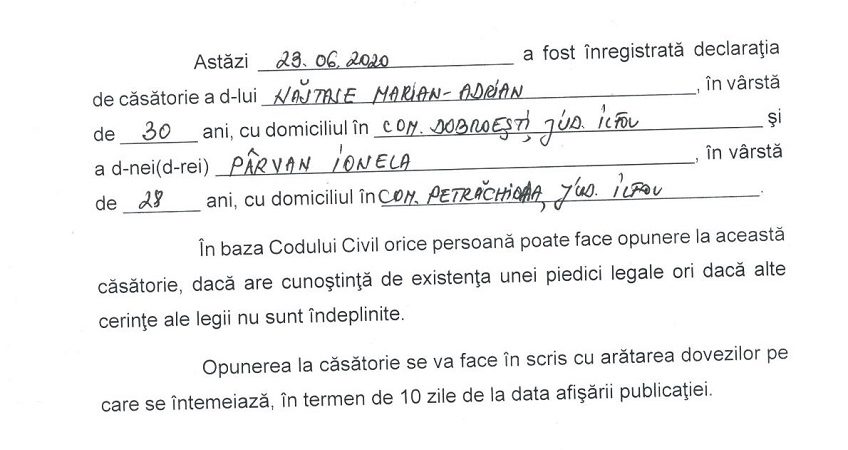 Astăzi 23.06.2020 a fost înregistrată declaraţia
de căsătorie a d-lui NĂSTASE MARIAN-ADRIAN, în vârstă
de 30 ani, cu domiciliul în COM. DOBROEŞTI, JUD. ILFOV şi
a d-nei(d-rei) PÂRVAN IONELA, în vârstă
de 28 ani, cu domiciliul în COM. PETRĂCHIOAIA, JUD. ILFOV.
În baza Codului Civil orice persoană poate face opunere la această
căsătorie, dacă are cunoştinţă de existenţa unei piedici legale ori dacă alte
cerinţe ale legii nu sunt îndeplinite.
Opunerea la căsătorie se va face în scris cu arătarea dovezilor pe
care se întemeiază, în termen de 10 zile de la data afişării publicaţiei.